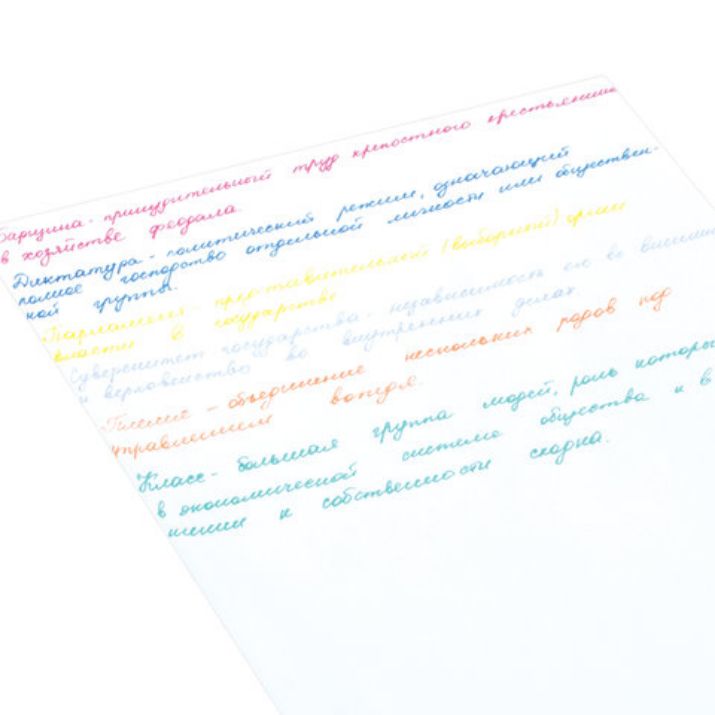 Барщина - принудительный труд крепостного крестьянина
в хозяйстве феодала.
Диктатура - политический режим, означающий
полное господство отдельной личности или обществен-
ной группы.
Парламент - представительный (выборный) орган
власти в государстве
Суверенитет государства - независимость его во внешних
и верховенство во внутренних делах.
Племя - объединение нескольких родов под
управлением вождя.
Класс - большая группа людей, роль которых
в экономической системе общества и в
шении к собственности сходна.